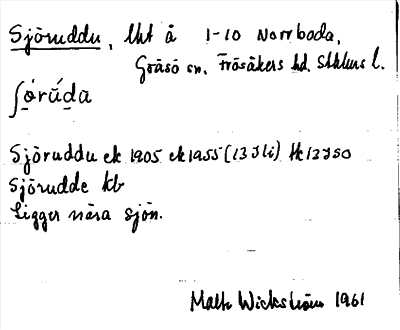 Sjöruddu, lht å 1-10 Norrboda,
Gräsö sn. Frösåkers hd. Sthlms l.
ʃọ́rŭ́ḍa
Sjöruddu ek 1905 ek 1955 (13 I 1i) Hk 12 J50
Sjörudde kb
Ligger nära sjön.
Malte Wickström 1961